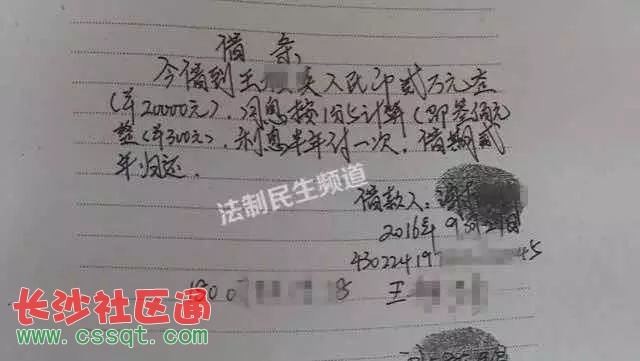 借条
今借到王 人民币贰万元整
(¥20000元),利息按1分5计算(即叁佰元
整(¥300元),利息半年付一次,借期贰
年归还.
法制民生频道
借款人:
2016年9月21日
430224197 45
180 0 8 王
长沙社区通
www.cssqt.com